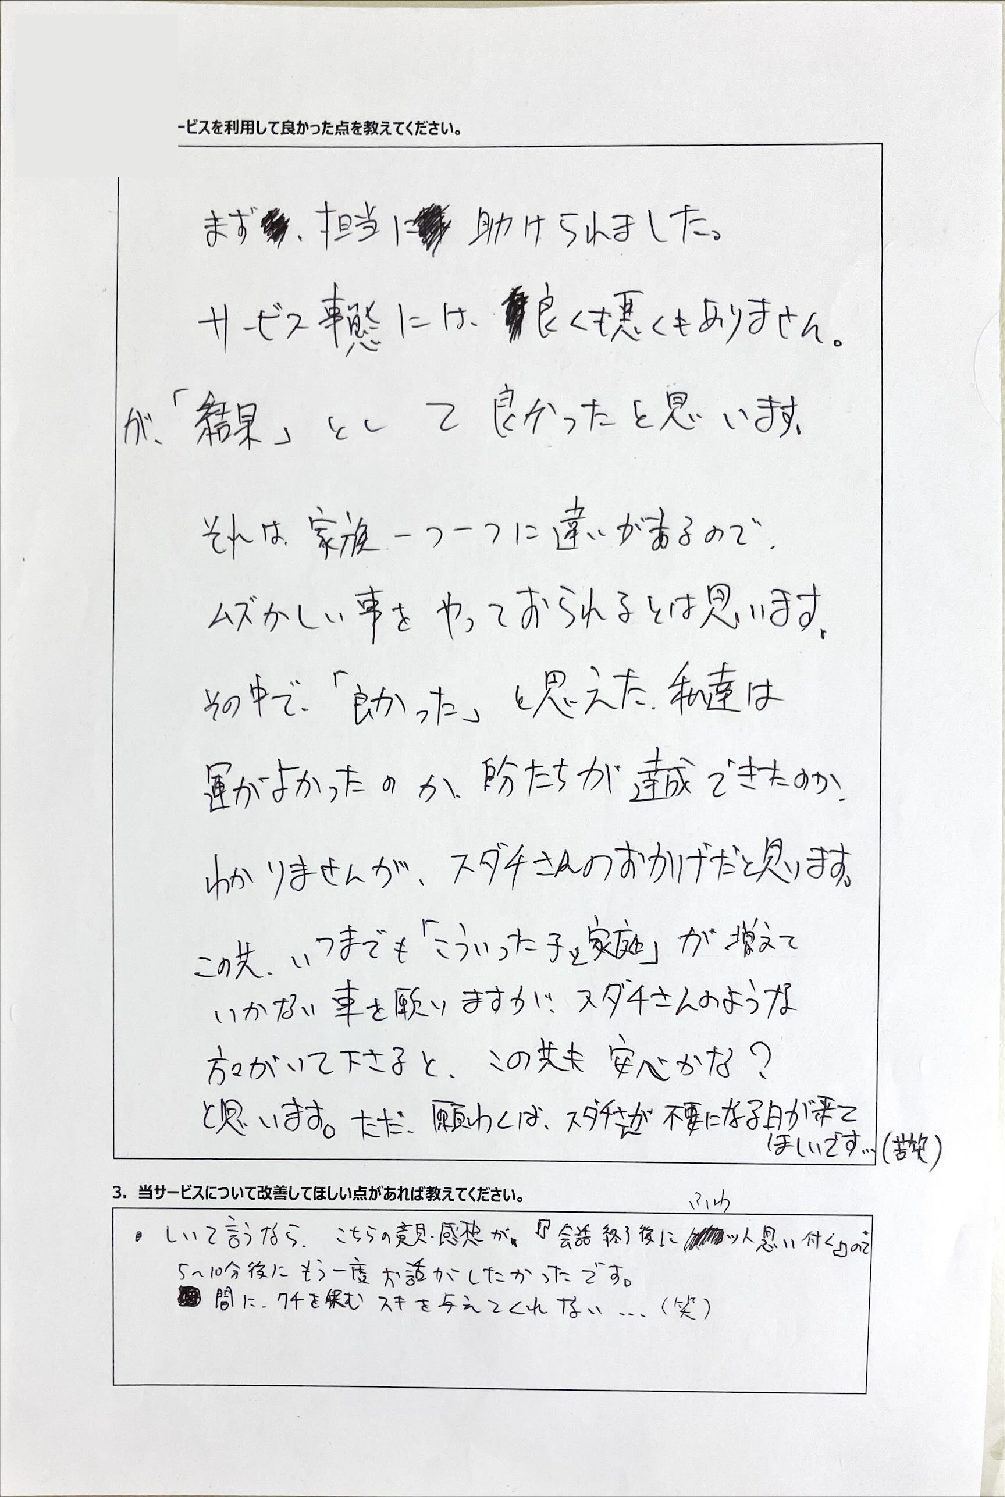 ービスを利用して良かった点を教えてください。
まず、担当に 助けられました。
サービス事態には、良くも悪くもありません。
が、「結果」として良かったと思います、
それは、家族一つ一つに違いがあるので、
ムズかしい事をやっておられるとは思います、
その中で、「良かった」と思えた、私達は
運がよかったのか、自分たちが達成できたのか、
わかりませんが、スダチさんのおかげだと思います。
この先、いつまでも「こういった子と家庭」が増えて
いかない事を願いますが、スダチさんのような
方々がいて下さると、この先 安心かな?
と思います。ただ、願わくば、スダチさんが不要になる日が来て
ほしいです…(苦笑)
3. 当サービスについて改善してほしい点があれば教えてください。
ふわ
・しいて言うなら、こちらの意見・感想が、『会話終了後に ッと思い付く』ので
5〜10分後にもう一度お話がしたかったです。
間に、クチを挟むスキを与えてくれない…(笑)